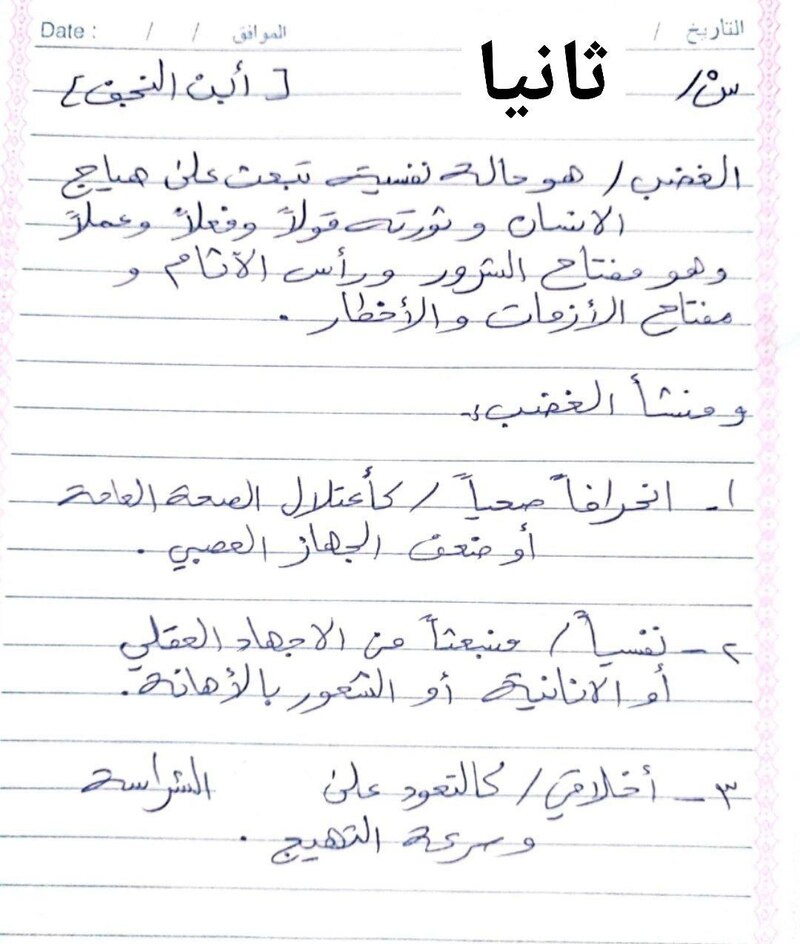 التاريخ / / الموافق / / Date :
س/ ثانيا [ أبن النجف ]
الغضب / هو حالة نفسية تبعث على هياج
الانسان وثورته قولاً وفعلاً وعملاً
وهو مفتاح الشرور ورأس الآثام و
مفتاح الأزمات والأخطار .
ومنشأ الغضب :-
١- انحرافاً صحياً / كأعتلال الصحة العامة
أو ضعف الجهاز العصبي .
٢- نفسياً / منبعثاً من الاجهاد العقلي
أو الانانية أو الشعور بالأهانة .
٣- أخلاقي / كالتعود على الشراسة
وسرعة التهيج .